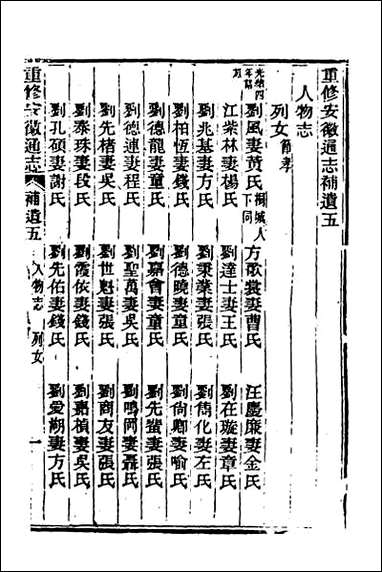 重修安徽通志補遺五
人物志
列女節孝
光緒四年旌
劉風妻黃氏桐城人下同 方歌裳妻曹氏 汪慶廉妻金氏
江柴林妻楊氏 劉達士妻王氏 劉在璇妻章氏
劉兆基妻方氏 劉秉藥妻張氏 劉儁化妻左氏
劉柏恆妻錢氏 劉德曉妻童氏 劉尙卿妻喻氏
劉德龍妻童氏 劉嘉會妻童氏 劉先蜚妻張氏
劉德連妻程氏 劉聖萬妻吳氏 劉鳴岡妻聶氏
劉先楮妻吳氏 劉世魁妻張氏 劉商友妻張氏
劉泰珠妻段氏 劉霞依妻錢氏 劉嘉楨妻吳氏
劉孔碩妻謝氏 劉先佑妻錢氏 劉愛湖妻方氏
重修安徽通志 補遺五 人物志 列女 一